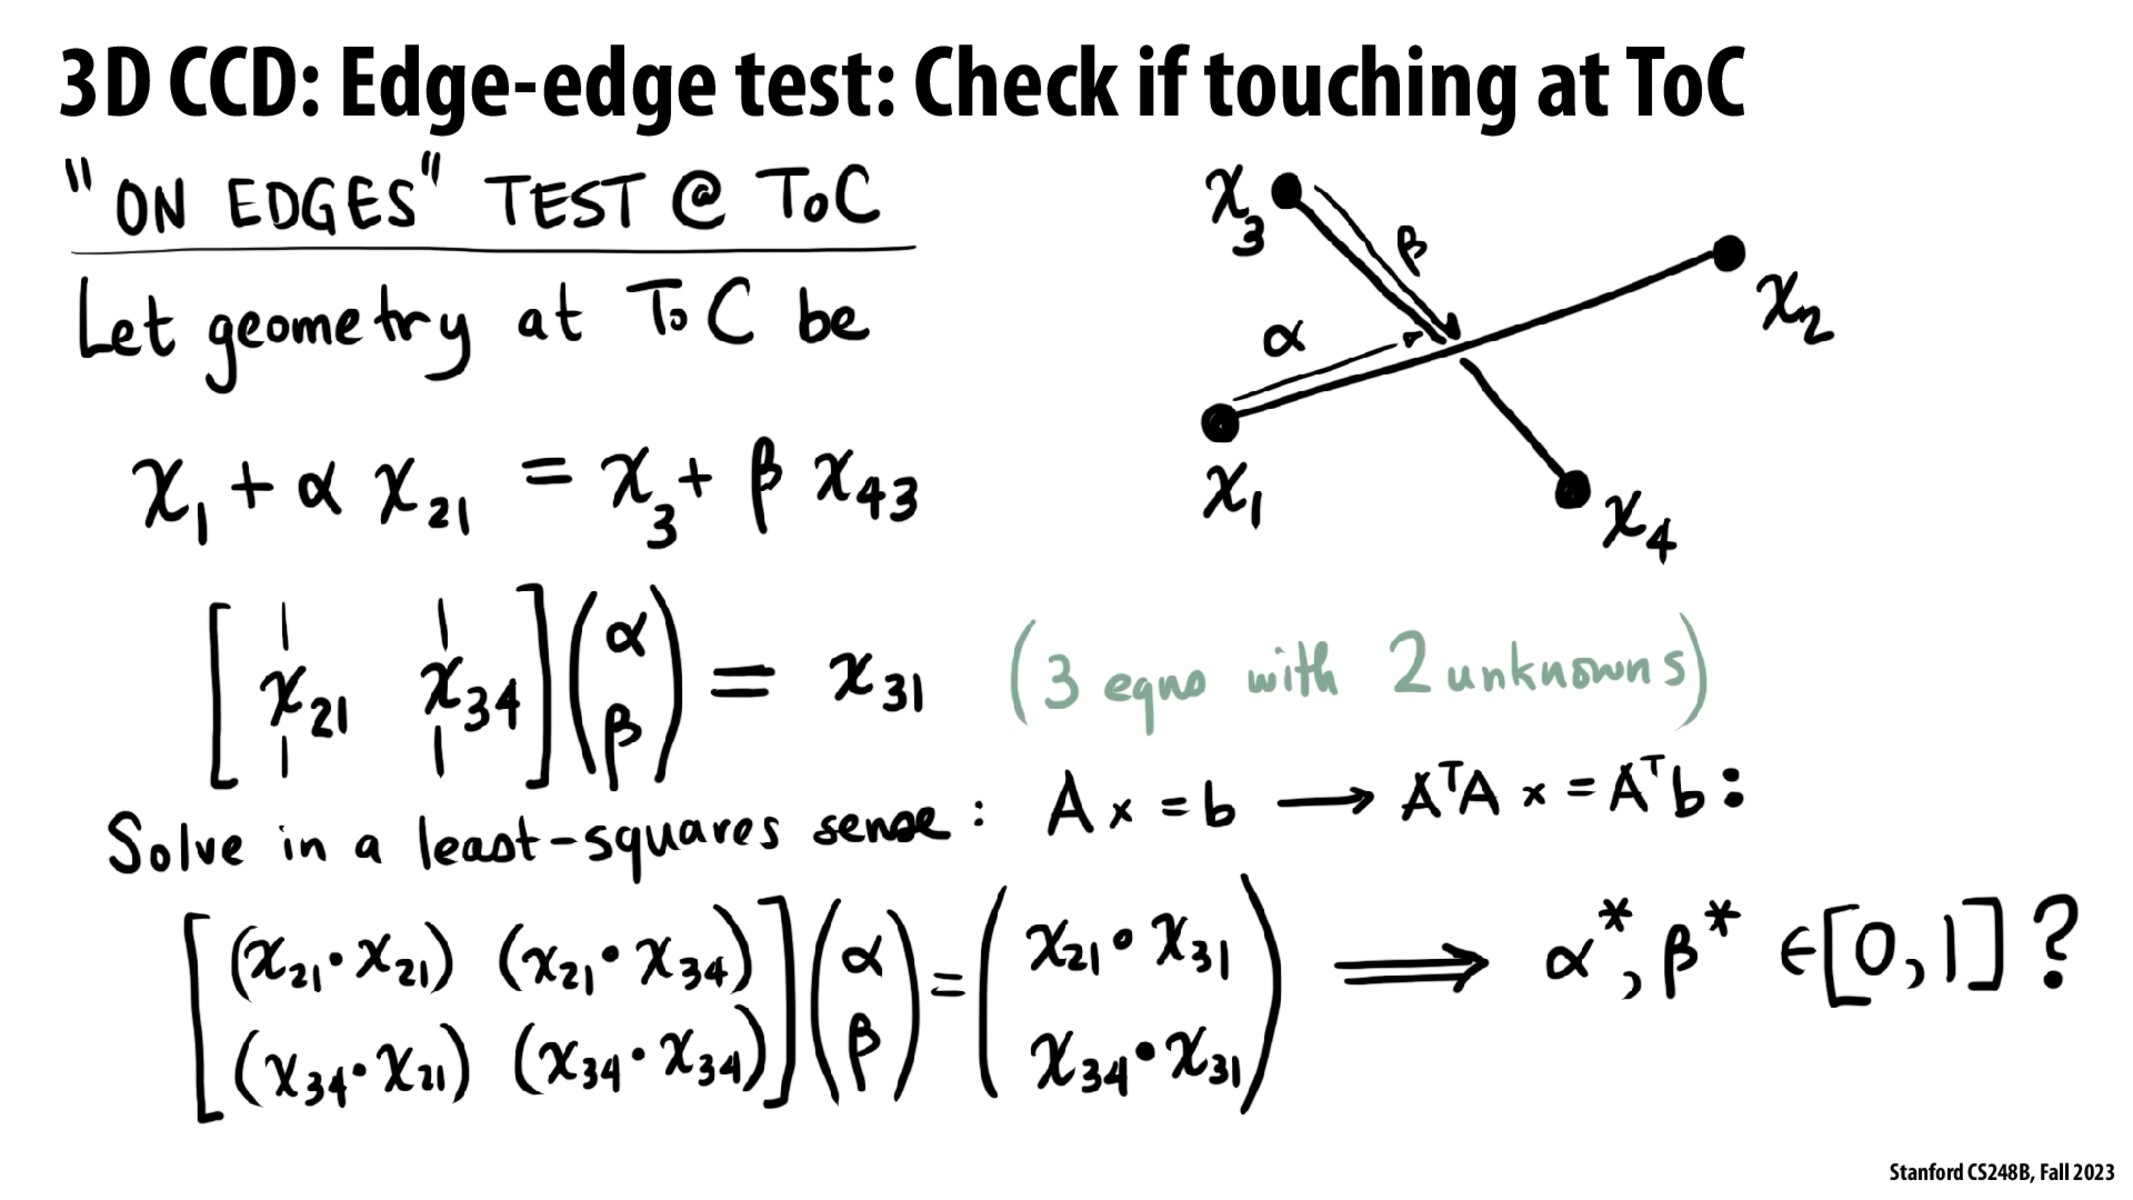 3D CCD: Edge-edge test: Check if touching at ToC
"ON EDGES" TEST @ ToC
Let geometry at ToC be
x₁ + α x₂₁ = x₃ + β x₄₃
x₃
β
x₂
α
x₁
x₄
[x₂₁ x₃₄] (α β) = x₃₁ (3 eqns with 2 unknowns)
Solve in a least-squares sense: A x = b → AᵀA x = Aᵀb:
[(x₂₁·x₂₁) (x₂₁·x₃₄)] (α) = (x₂₁·x₃₁) ⟹ α*, β* ∈ [0,1]?
[(x₃₄·x₂₁) (x₃₄·x₃₄)] (β) (x₃₄·x₃₁)
Stanford CS248B, Fall 2023